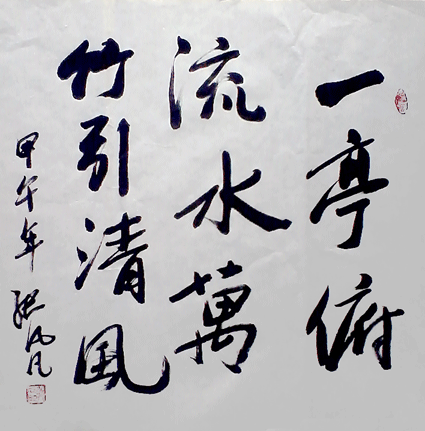 一亭俯
流水萬
竹引清風
甲午年